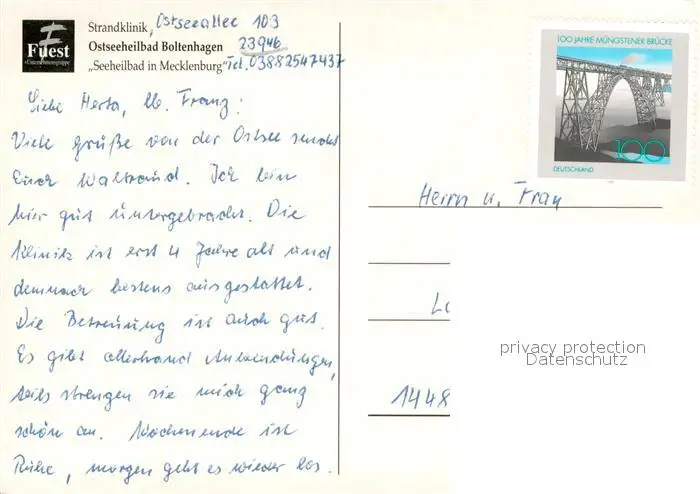 Fuest
Unternehmensgruppe
Strandklinik, Ostseeallee 103
Ostseeheilbad Boltenhagen 23946
„Seeheilbad in Mecklenburg“ Tel. 03882547437
Liebe Herta, lb. Franz:
Viele Grüße von der Ostsee sendet
Euch Waltraud. Ich bin
hier gut untergebracht. Die
Klinik ist erst 4 Jahre alt und
demnach bestens ausgestattet.
Die Betreuung ist auch gut.
Es gibt allerhand Anwendungen,
teils strengen sie mich ganz
schön an. Wochenende ist
Ruhe, morgen geht es wieder los.
100 JAHRE MÜNGSTENER BRÜCKE
100
DEUTSCHLAND
Herrn u. Frau
1448
privacy protection
Datenschutz